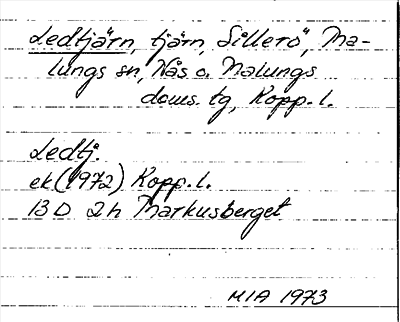 Ledtjärn, tjärn, Sillerö, Ma-
lungs sn, Nås o. Malungs
doms. tg, Kopp. l.
Ledtj.
ek (1972) Kopp. l.
13 D 2h Markusberget
MIA 1973